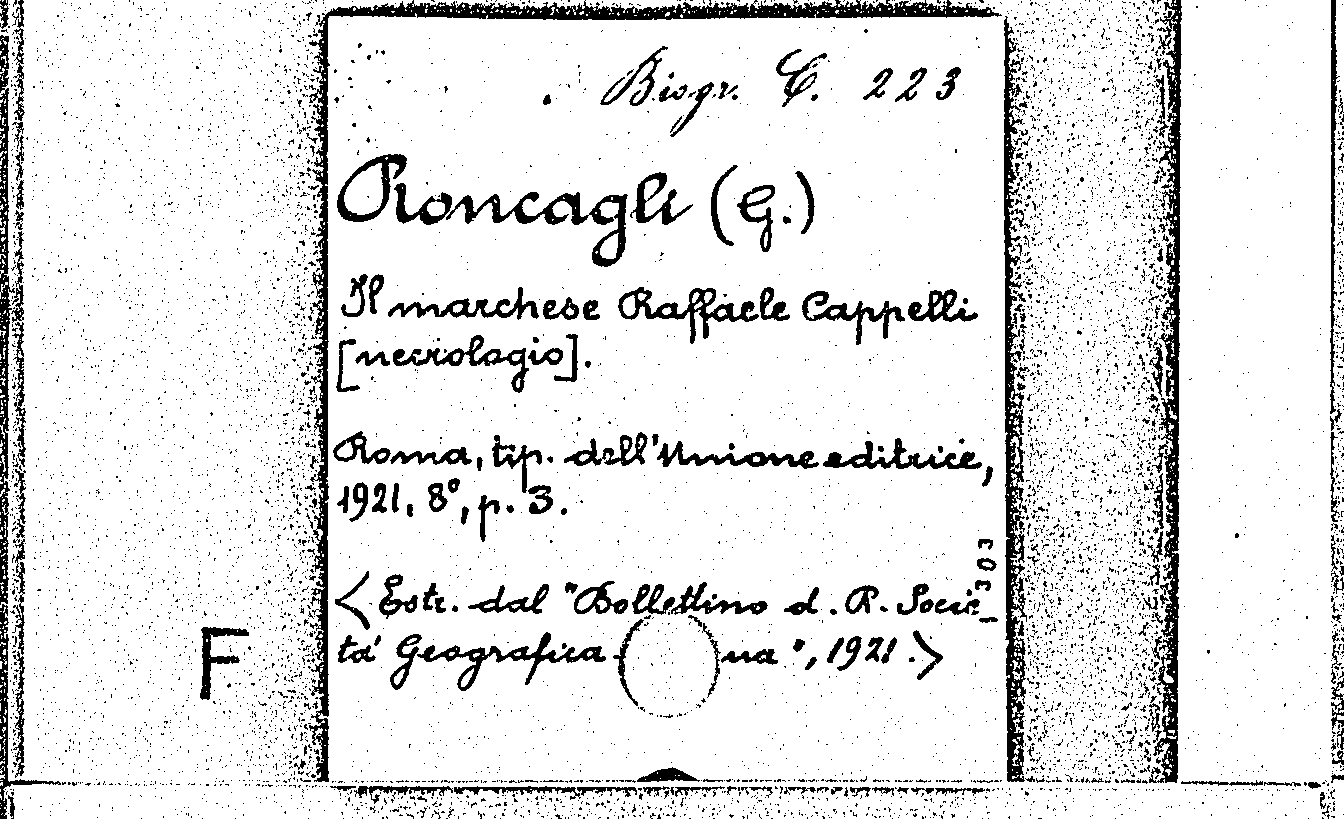 Biogr. C. 223
Roncagli (G.)
Il marchese Raffaele Cappelli
[necrologio].
Roma, tip. dell'Unione editrice,
1921. 8°, p. 3.
<Estr. dal "Bollettino d. R. Socie_
tà Geografica na", 1921.>
303
F